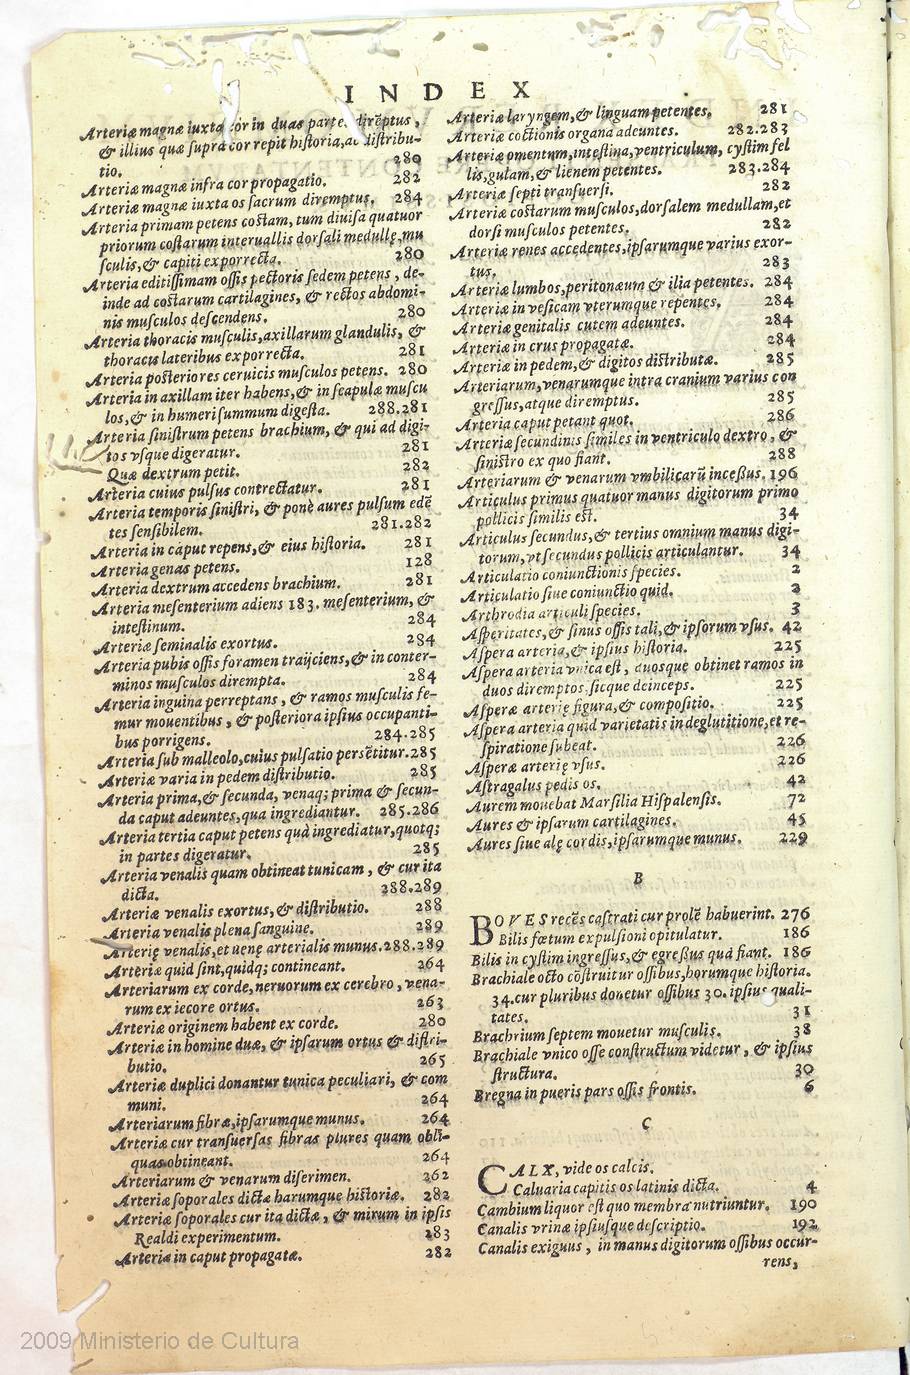 INDEX
Arteriæ magnæ iuxta cor in duas partes direptus,
& illius quæ supra cor repit historia, ac distribu-
tio. 280
Arteriæ magnæ infra cor propagatio. 282
Arteriæ magnæ iuxta os sacrum diremptus. 284
Arteria primam petens costam, tum diuisa quatuor
priorum costarum interuallis dorsali medullę, mu
sculis, & capiti exporrecta. 280
Arteria editissimam ossis pectoris sedem petens, de-
inde ad costarum cartilagines, & rectos abdomi-
nis musculos descendens. 280
Arteria thoracis musculis, axillarum glandulis, &
thoracis lateribus exporrecta. 281
Arteria posteriores ceruicis musculos petens. 280
Arteria in axillam iter habens, & in scapulæ muscu
los, & in humeri summum digesta. 288.281
Arteria sinistrum petens brachium, & qui ad digi-
tos vsque digeratur. 281
Quæ dextrum petit. 282
Arteria cuius pulsus contrectatur. 281
Arteria temporis sinistri, & ponè aures pulsum edē
tes sensibilem. 281.282
Arteria in caput repens, & eius historia. 281
Arteria genas petens. 128
Arteria dextrum accedens brachium. 281
Arteria mesenterium adiens 183. mesenterium, &
intestinum. 284
Arteriæ seminalis exortus. 284
Arteria pubis ossis foramen traijciens, & in conter-
minos musculos dirempta. 284
Arteria inguina perreptans, & ramos musculis fe-
mur mouentibus, & posteriora ipsius occupanti-
bus porrigens. 284.285
Arteria sub malleolo, cuius pulsatio persētitur. 285
Arteriæ varia in pedem distributio. 285
Arteria prima, & secunda, venaq; prima & secun-
da caput adeuntes, qua ingrediantur. 285.286
Arteria tertia caput petens quà ingrediatur, quotq;
in partes digeratur. 285
Arteria venalis quam obtineat tunicam, & cur ita
dicta. 288.289
Arteriæ venalis exortus, & distributio. 288
Arteria venalis plena sanguine. 289
Arterię venalis, et uenę arterialis munus. 288.289
Arteriæ quid sint, quidq; contineant. 264
Arteriarum ex corde, neruorum ex cerebro, vena-
rum ex iecore ortus. 263
Arteriæ originem habent ex corde. 280
Arteriæ in homine duæ, & ipsarum ortus & distri-
butio. 265
Arteriæ duplici donantur tunica peculiari, & com
muni. 264
Arteriarum fibræ, ipsarumque munus. 264
Arteriæ cur transuersas fibras plures quam obli-
quas obtineant. 264
Arteriarum & venarum diserimen. 262
Arteriæ soporales dictæ harumque historiæ. 282
Arteriæ soporales cur ita dictæ, & mirum in ipsis
Realdi experimentum. 283
Arteriæ in caput propagatæ. 282
Arteriæ laryngem, & linguam petentes. 281
Arteriæ coctionis organa adeuntes. 282.283
Arteriæ omentum, intestina, ventriculum, cystim fel
lis, gulam, & lienem petentes. 283.284
Arteriæ septi transuersi. 282
Arteriæ costarum musculos, dorsalem medullam, et
dorsi musculos petentes. 282
Arteriæ renes accedentes, ipsarumque varius exor-
tus. 283
Arteriæ lumbos, peritonæum & ilia petentes. 284
Arteriæ in vesicam vterumque repentes. 284
Arteriæ genitalis cutem adeuntes. 284
Arteriæ in crus propagatæ. 284
Arteriæ in pedem, & digitos distributæ. 285
Arteriarum, venarumque intra cranium varius con
gressus, atque diremptus. 285
Arteriæ caput petant quot. 286
Arteriæ secundinis similes in ventriculo dextro, &
sinistro ex quo fiant. 288
Arteriarum & venarum vmbilicarū incessus. 196
Articulus primus quatuor manus digitorum primo
pollicis similis est. 34
Articulus secundus, & tertius omnium manus digi-
torum, vt secundus pollicis articulantur. 34
Articulatio coniunctionis species. 2
Articulatio siue coniunctio quid. 2
Arthrodia articuli species. 3
Asperitates, & sinus ossis tali, & ipsorum vsus. 42
Aspera arteria, & ipsius historia. 225
Aspera arteria vnica est, duosque obtinet ramos in
duos diremptos, sicque deinceps. 225
Asperæ arterię figura, & compositio. 225
Aspera arteria quid varietatis in deglutitione, et re-
spiratione subeat. 226
Asperæ arterię vsus. 226
Astragalus pedis os. 42
Aurem mouebat Marsilia Hispalensis. 72
Aures & ipsarum cartilagines. 45
Aures siue alę cordis, ipsarumque munus. 229
B
BOVES recēs castrati cur prolē habuerint. 276
Bilis fœtum expulsioni opitulatur. 186
Bilis in cystim ingressus, & egressus quà fiant. 186
Brachiale octo cōstruitur ossibus, horumque historia.
34. cur pluribus donetur ossibus 30. ipsius quali-
tates. 31
Brachrium septem mouetur musculis. 38
Brachiale vnico osse constructum videtur, & ipsius
structura. 30
Bregna in pueris pars ossis frontis. 6
C
CALX, vide os calcis.
Caluaria capitis os latinis dicta. 4
Cambium liquor est quo membra nutriuntur. 190
Canalis vrinæ ipsiusque descriptio. 192
Canalis exiguus, in manus digitorum ossibus occur-
rens,
2009 Ministerio de Cultura